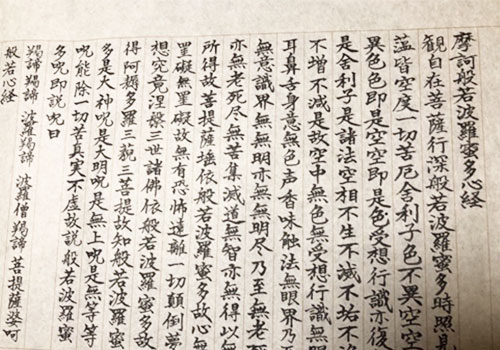 摩訶般若波羅蜜多心経
観自在菩薩行深般若波羅蜜多時照見
蘊皆空度一切苦厄舎利子色不異空空
異色色即是空空即是色受想行識亦復
是舎利子是諸法空相不生不滅不垢不
不増不減是故空中無色無受想行識無
耳鼻舌身意無色声香味触法無眼界乃
無意識界無無明亦無無明尽乃至無老
亦無老死尽無苦集滅道無智亦無得以
所得故菩提薩埵依般若波羅蜜多故心
罣礙無罣礙故無有恐怖遠離一切顛倒夢
想究竟涅槃三世諸佛依般若波羅蜜多故
得阿耨多羅三藐三菩提故知般若波羅蜜
多是大神呪是大明呪是無上呪是無等等
呪能除一切苦真実不虚故説般若波羅蜜
多呪即説呪曰
羯諦 羯諦 波羅羯諦 波羅僧羯諦 菩提薩婆呵
般若心経